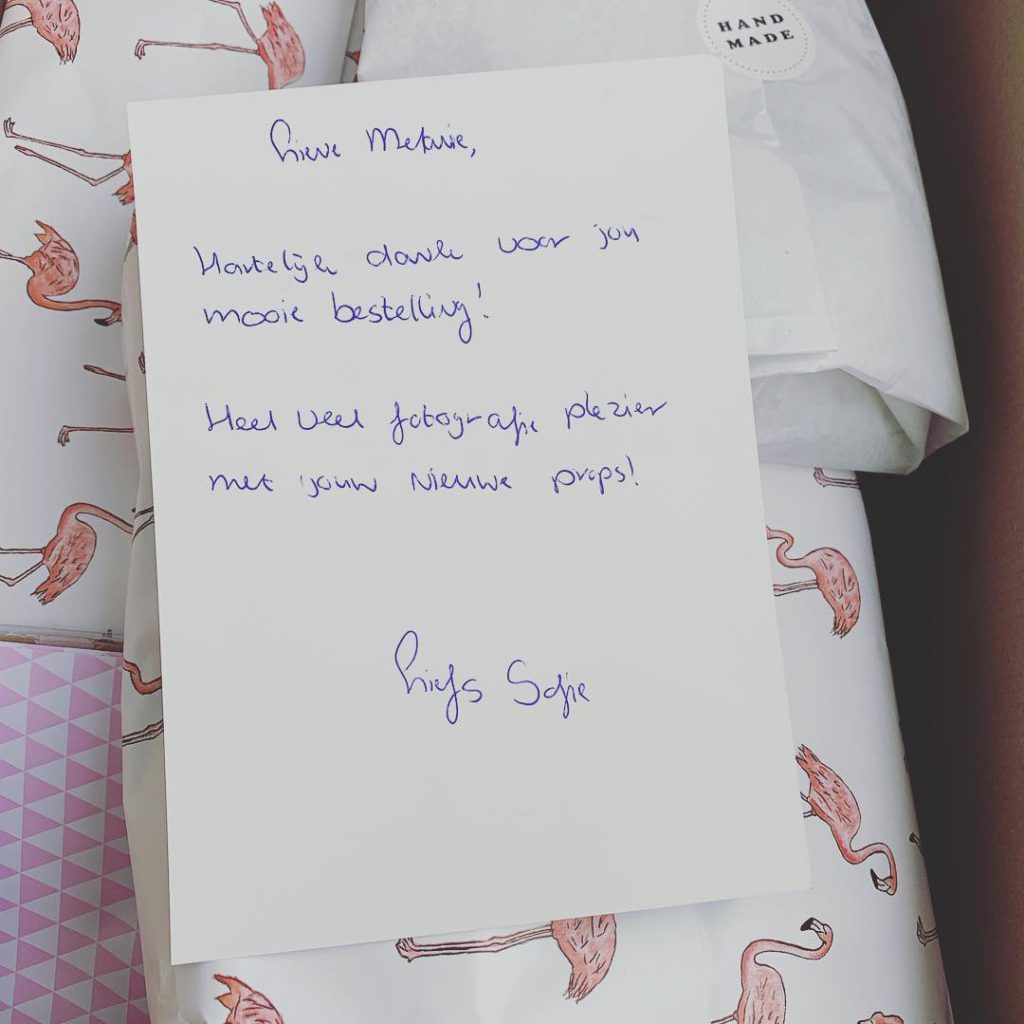 HAND
MADE
Lieve Melanie,
Hartelijk dank voor jou
mooie bestelling!
Heel veel fotografie plezier
met jouw nieuwe props!
Liefs Sofie